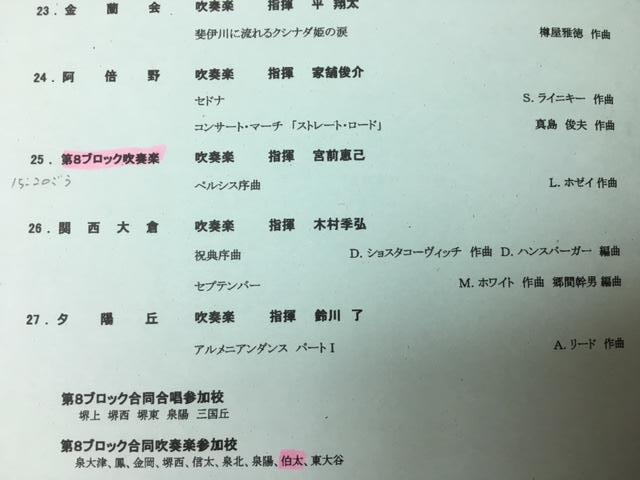 23．金蘭会 吹奏楽 指揮 平 翔太
斐伊川に流れるクシナダ姫の涙 樽屋雅徳 作曲
24．阿倍野 吹奏楽 指揮 家舗俊介
セドナ S. ライニキー 作曲
コンサート・マーチ 「ストレート・ロード」 真島 俊夫 作曲
25．第8ブロック吹奏楽 吹奏楽 指揮 宮前恵己
15:20ごろ
ペルシス序曲 L. ホゼイ 作曲
26．関西大倉 吹奏楽 指揮 木村季弘
祝典序曲 D. ショスタコーヴィッチ 作曲 D. ハンスバーガー 編曲
セプテンバー M. ホワイト 作曲 郷間幹男 編曲
27．夕陽丘 吹奏楽 指揮 鈴川 了
アルメニアンダンス パートⅠ A. リード 作曲
第8ブロック合同合唱参加校
堺上 堺西 堺東 泉陽 三国丘
第8ブロック合同吹奏楽参加校
泉大津、鳳、金岡、堺西、信太、泉北、泉陽、伯太、東大谷